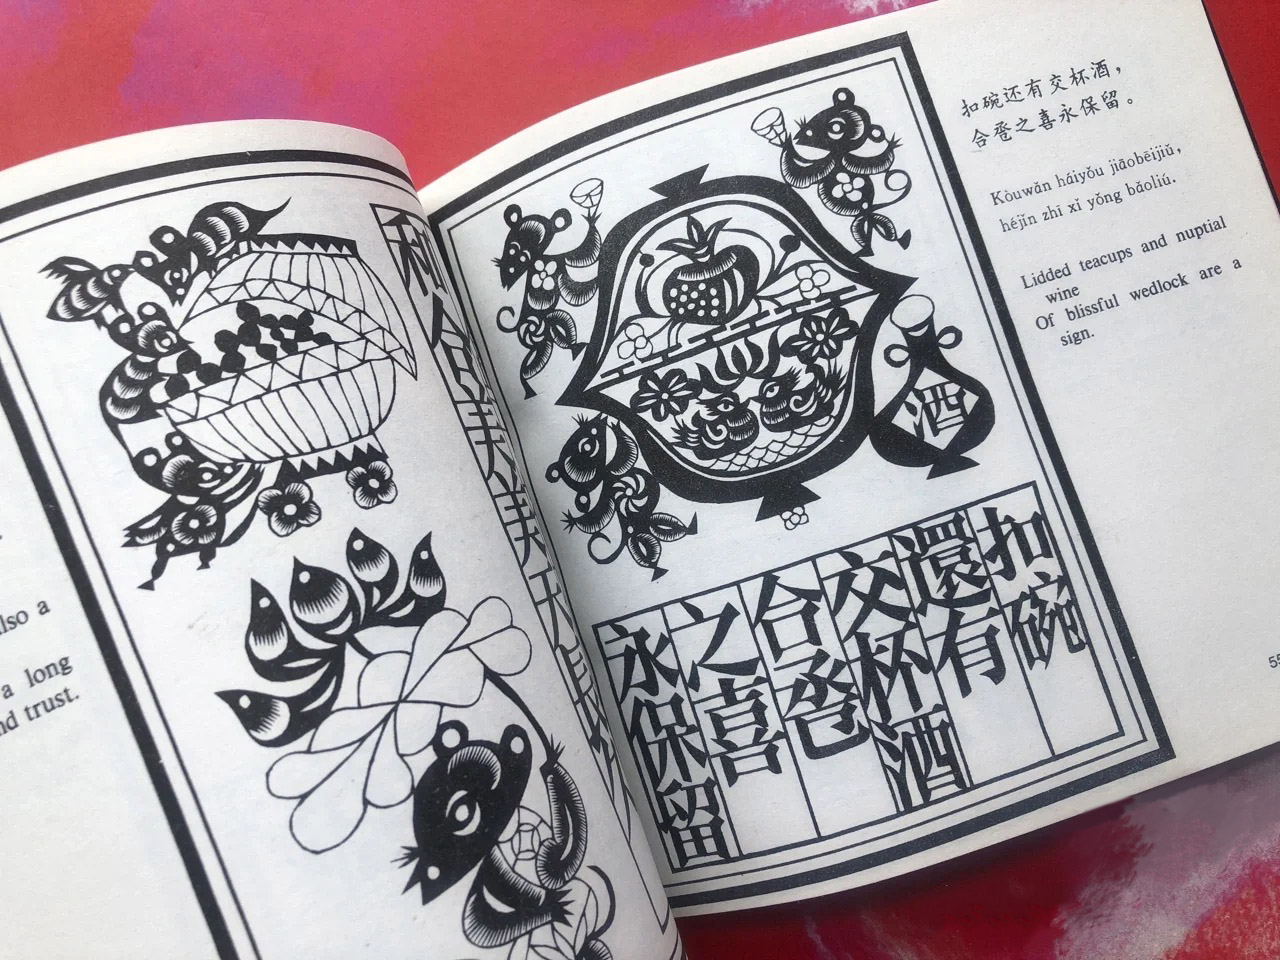 lso a
a long
nd trust.
和合美美
酒
扣碗
還有
交杯酒
合卺
之喜
永保留
扣碗还有交杯酒，
合卺之喜永保留。
Kòuwǎn háiyǒu jiāobēijiǔ,
héjǐn zhī xǐ yǒng bǎoliú.
Lidded teacups and nuptial
wine
Of blissful wedlock are a
sign.
55